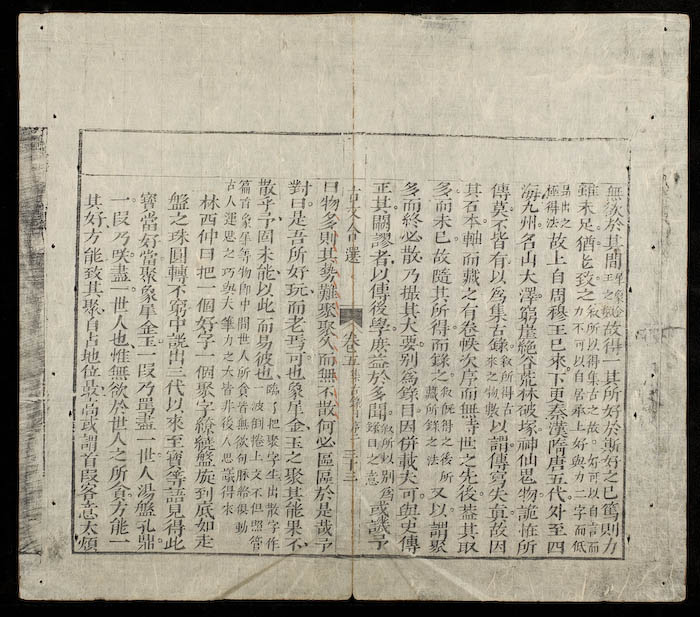 無欲於其間犀象金玉之類故得一其所好於斯好之已篤則力
雖未足猶能致之敘所以得集古之故。好可以自言而力不可以自居承上好與力二字而低
昂出之極得法故上自周穆王已來下更秦漢隋唐五代外至四
海九州名山大澤窮崖絶谷荒林破塚神仙鬼物詭怪所
傳莫不皆有以爲集古錄敘所得古來之物數以謂傳寫失眞故因
其石本軸而藏之有卷帙次序而無時世之先後蓋其取
多而未已故隨其所得而錄之敘旣得之後所藏所錄之法又以謂聚
多而終必散乃撮其大要別爲錄目因併載夫可與史傳
正其闕謬者以傳後學庶益於多聞敘所以別爲錄目之意或譏予
古文合選 卷五集古錄目序 二 三十三
曰物多則其勢難聚聚久而無不散何必區區於是哉予
對曰是吾所好玩而老焉可也象犀金玉之聚其能果不
散乎予固未能以此而易彼也臨了把聚字生出散字作一波倒捲上文不但照管
篇首象犀等物卽中間世人所貪皆無欲句脉絡俱動古人運思之巧與夫筆力之大皆非後人思議得來
林西仲曰把一個好字一個聚字繚繞盤旋到底如走
盤之珠圓轉不窮中說出三代以來至寶等語見得此
寶當好當聚象犀金玉一段乃罵盡一世人湯盤孔鼎
一段乃笑盡一世人也惟無欲於世人之所貪方能一
其好方能致其聚自占地位最高或謂首段客意太煩